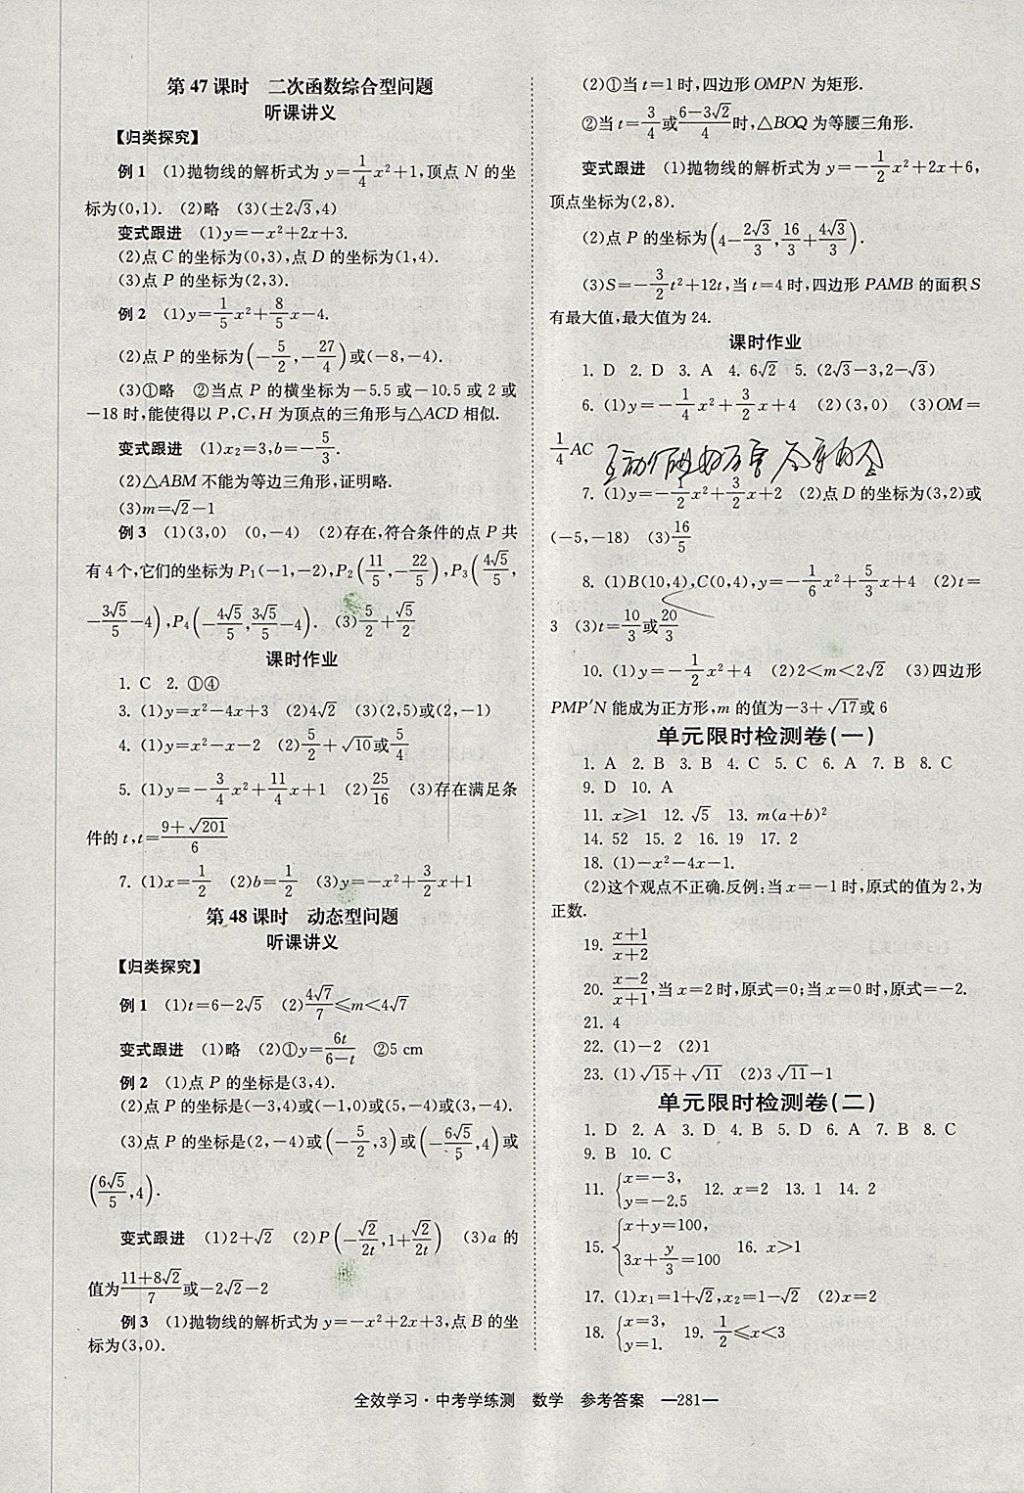 第47课时　二次函数综合型问题
听课讲义
【归类探究】
例1　(1)抛物线的解析式为 y=\frac{1}{4}x²+1,顶点 N 的坐
标为(0,1).　(2)略　(3)(±2√3,4)
变式跟进　(1)y=-x²+2x+3.
(2)点 C 的坐标为(0,3),点 D 的坐标为(1,4).
(3)点 P 的坐标为(2,3).
例2　(1)y=\frac{1}{5}x²+\frac{8}{5}x-4.
(2)点 P 的坐标为(-\frac{5}{2},-\frac{27}{4})或(-8,-4).
(3)①略　②当点 P 的横坐标为-5.5或-10.5或2或
-18时,能使得以 P,C,H 为顶点的三角形与△ACD 相似.
变式跟进　(1)x₂=3,b=-\frac{5}{3}.
(2)△ABM 不能为等边三角形,证明略.
(3)m=√2-1
例3　(1)(3,0)　(0,-4)　(2)存在,符合条件的点 P 共
有4个,它们的坐标为 P₁(-1,-2),P₂(\frac{11}{5},-\frac{22}{5}),P₃(\frac{4√5}{5},
-\frac{3√5}{5}-4),P₄(-\frac{4√5}{5},\frac{3√5}{5}-4).　(3)\frac{5}{2}+\frac{√5}{2}
课时作业
1. C　2. ①④
3. (1)y=x²-4x+3　(2)4√2　(3)(2,5)或(2,-1)
4. (1)y=x²-x-2　(2)\frac{5}{2}+√10或\frac{5}{4}
5. (1)y=-\frac{3}{4}x²+\frac{11}{4}x+1　(2)\frac{25}{16}　(3)存在满足条
件的 t,t=\frac{9+√201}{6}
7. (1)x=\frac{1}{2}　(2)b=\frac{1}{2}　(3)y=-x²+\frac{3}{2}x+1
第48课时　动态型问题
听课讲义
【归类探究】
例1　(1)t=6-2√5　(2)\frac{4√7}{7}≤m<4√7
变式跟进　(1)略　(2)①y=\frac{6t}{6-t}　②5 cm
例2　(1)点 P 的坐标是(3,4).
(2)点 P 的坐标是(-3,4)或(-1,0)或(5,-4)或(3,-4).
(3)点 P 的坐标是(2,-4)或(-\frac{5}{2},3)或(-\frac{6√5}{5},4)或
(\frac{6√5}{5},4).
变式跟进　(1)2+√2　(2)P(-\frac{√2}{2t},1+\frac{√2}{2t})　(3)a 的
值为\frac{11+8√2}{7}或-2√2-2
例3　(1)抛物线的解析式为 y=-x²+2x+3,点 B 的坐
标为(3,0).
(2)①当 t=1时,四边形 OMPN 为矩形.
②当 t=\frac{3}{4}或\frac{6-3√2}{4}时,△BOQ 为等腰三角形.
变式跟进　(1)抛物线的解析式为 y=-\frac{1}{2}x²+2x+6,
顶点坐标为(2,8).
(2)点 P 的坐标为(4-\frac{2√3}{3},\frac{16}{3}+\frac{4√3}{3}).
(3)S=-\frac{3}{2}t²+12t,当 t=4时,四边形 PAMB 的面积 S
有最大值,最大值为24.
课时作业
1. D　2. D　3. A　4. 6√2　5. (2√3-3,2-√3)
6. (1)y=-\frac{1}{4}x²+\frac{3}{2}x+4　(2)(3,0)　(3)OM=
\frac{1}{4}AC
7. (1)y=-\frac{1}{2}x²+\frac{3}{2}x+2　(2)点 D 的坐标为(3,2)或
(-5,-18)　(3)\frac{16}{5}
8. (1)B(10,4),C(0,4),y=-\frac{1}{6}x²+\frac{5}{3}x+4　(2)t=
3　(3)t=\frac{10}{3}或\frac{20}{3}
10. (1)y=-\frac{1}{2}x²+4　(2)2<m<2√2　(3)四边形
PMP′N 能成为正方形,m 的值为-3+√17或6
单元限时检测卷(一)
1. A　2. B　3. B　4. C　5. C　6. A　7. B　8. C
9. D　10. A
11. x≥1　12. √5　13. m(a+b)²
14. 52　15. 2　16. 19　17. 2
18. (1)-x²-4x-1.
(2)这个观点不正确.反例:当 x=-1时,原式的值为2,为
正数.
19. \frac{x+1}{x+2}
20. \frac{x-2}{x+1},当 x=2时,原式=0;当 x=0时,原式=-2.
21. 4
22. (1)-2　(2)1
23. (1)√15+√11　(2)3√11-1
单元限时检测卷(二)
1. D　2. A　3. D　4. B　5. D　6. A　7. B　8. C
9. B　10. C
11. {x=-3, y=-2.5　12. x=2　13. 1　14. 2
15. {x+y=100, 3x+\frac{y}{3}=100　16. x>1
17. (1)x₁=1+√2,x₂=1-√2　(2)x=2
18. {x=3, y=1.　19. \frac{1}{2}≤x<3
全效学习·中考学练测　数学　参考答案　—281—